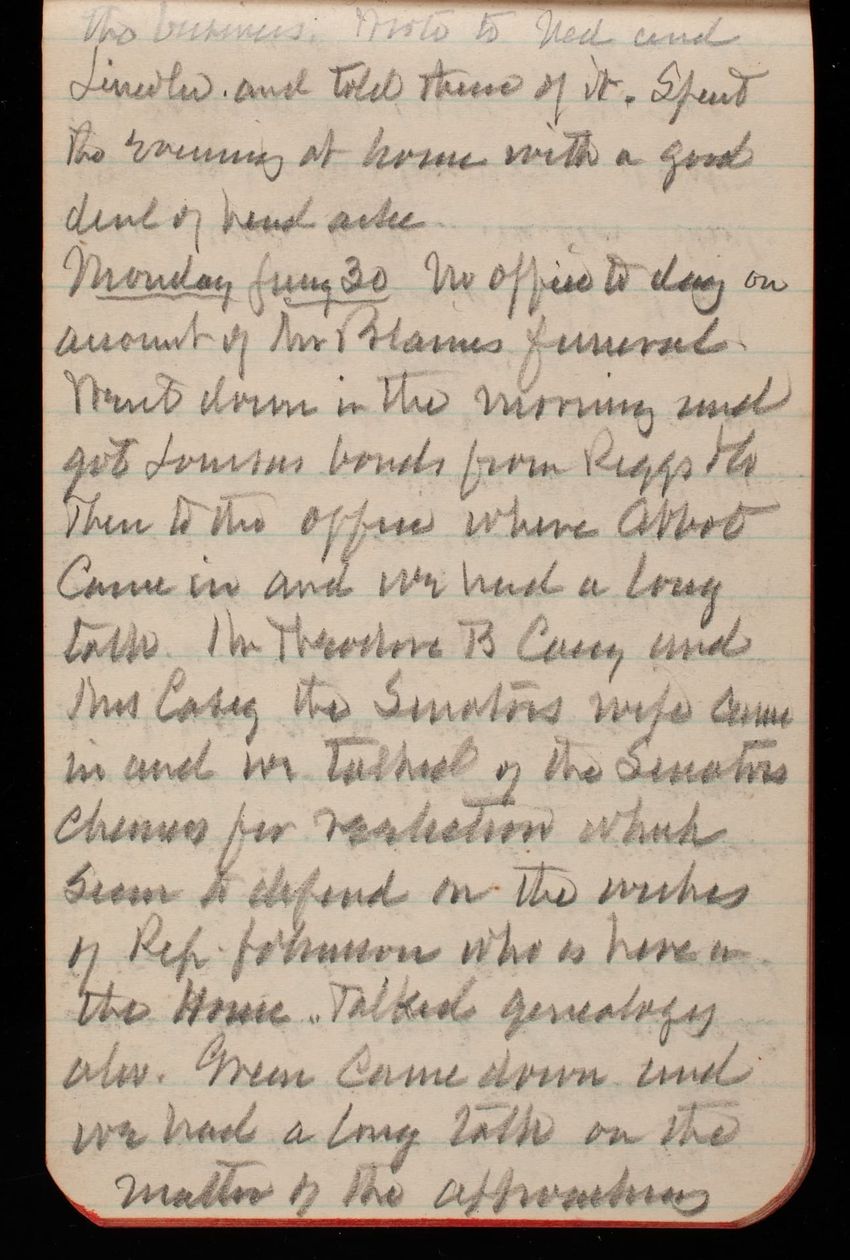 the business. Wrote to Ned and
Lincoln. and told them of it. Spent
the evening at home with a good
deal of head ache
Monday Jany 30 No office to day on
account of Mr Blaines funeral.
Went down in the morning and
got bonds from Riggs & Co
Then to the office where Abbot
Came in and we had a long
talk. Mr Theodore B Casey and
Mrs Casey the Senators wife came
in and we talked of the Senators
Chances for reelection which
seem to depend on the wishes
of Rep. who is here in
the House. Talked genealogy
also. Green Came down and
we had a long talk on the
matter of the approaching